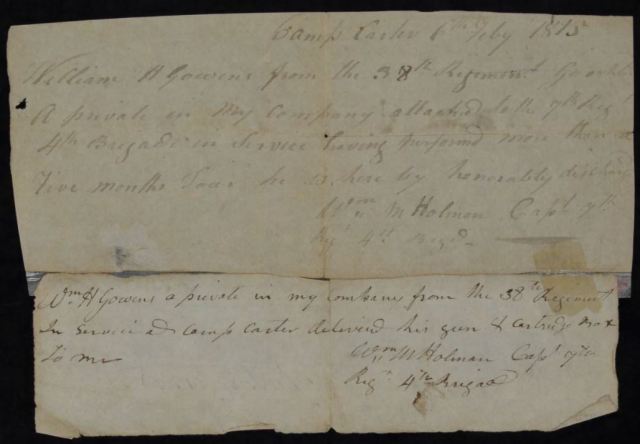 Camp Carter 6th Feby 1815
William H Gowens from the 38th Regiment
A private in my company attached to the 7th Regt
4th Brigade in Service having performed more than
Five months Tour he is hereby honorably discharg
Wm M Holman Capt 7th
Regt 4th Brigd
Wm H Gowens a private in my company from the 38th Regiment
In Service at Camp Carter delivered his gun & Cartridge Box
To me
Wm M Holman Capt 7th
Regt 4th Brigad